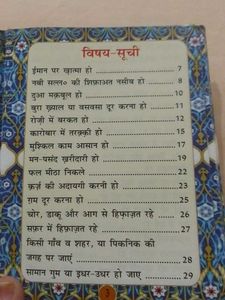 विषय-सूची
ईमान पर ख़ात्मा हो 7
नबी सल्ल० की शिफ़ाअत नसीब हो 8
दुआ मक़बूल हो 10
बुरा ख़्याल या वसवसा दूर करना हो 11
रोज़ी में बरकत हो 12
कारोबार में तरक़्क़ी हो 15
मुश्किल काम आसान हो 17
मन-पसंद ख़रीदारी हो 19
फल मीठा निकले 22
क़र्ज़ की अदायगी करनी हो 23
ग़म दूर करना हो 25
चोर, डाकू और आग से हिफ़ाज़त रहे 26
सफ़र में हिफ़ाज़त रहे 27
किसी गाँव व शहर, या पिकनिक की
जगह पर जाएं 28
सामान गुम या इधर-उधर हो जाए 29
3